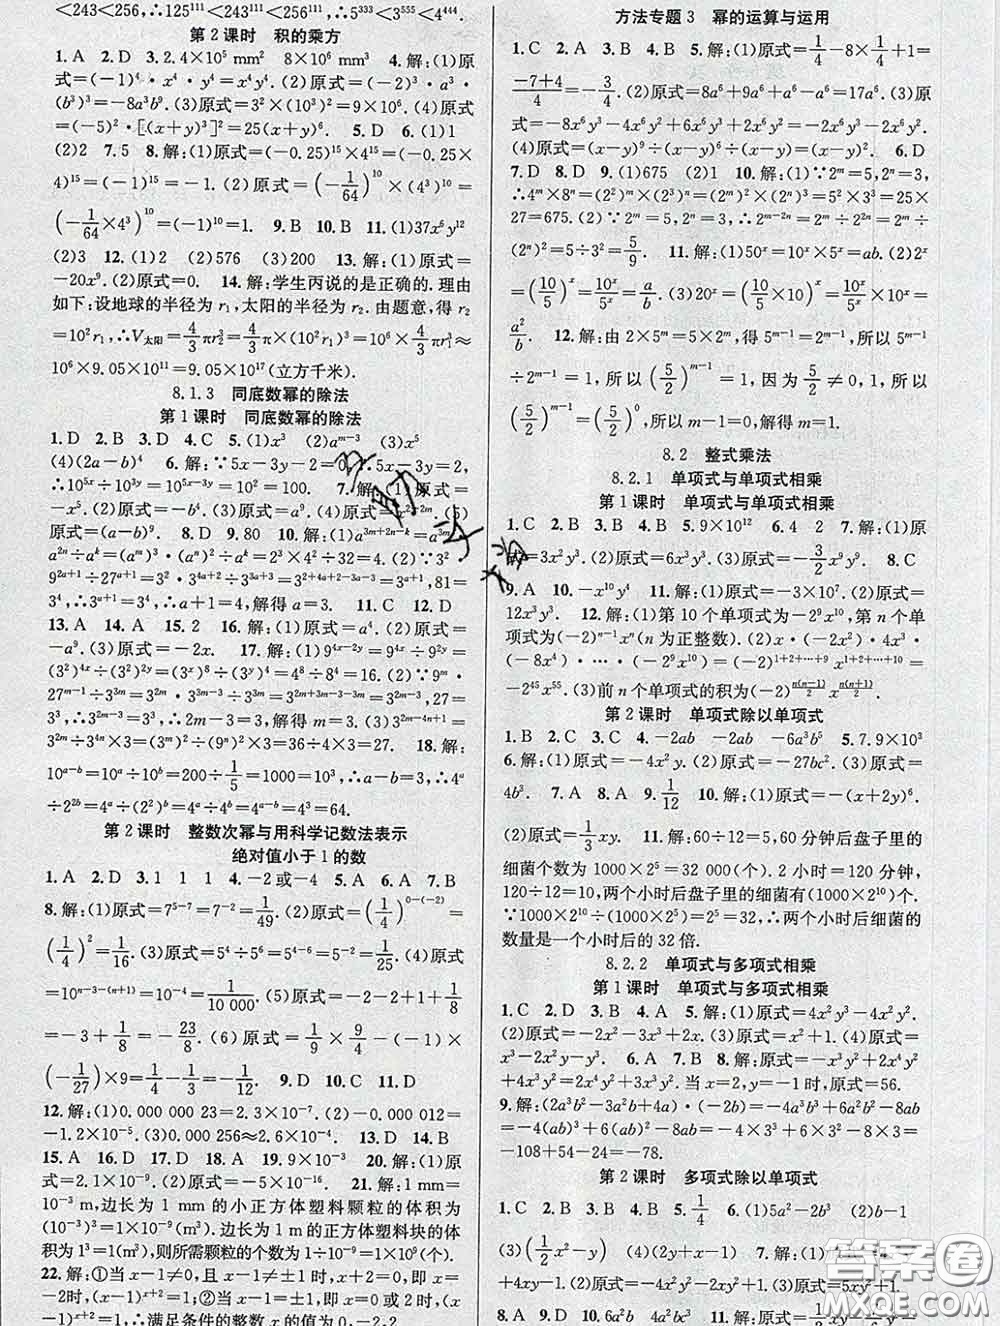 <243<256,∴125¹¹¹<243¹¹¹<256¹¹¹,∴5³³³<3⁵⁵⁵<4⁴⁴⁴.
第2课时 积的乘方
1. A 2. D 3. 2.4×10⁵ mm² 8×10⁶ mm³ 4. 解:(1)原
式=(-1)⁴·x⁴·y⁴=x⁴y⁴. (2)原式=(-2)³·a³·
(b³)³=-8a³b⁹. (3)原式=3²×(10³)²=9×10⁶. (4)原式
=(-5)²·[(x+y)³]²=25(x+y)⁶. 5. D 6. (1)1
(2)2 7. 5 8. 解:(1)原式=(-0.25)¹⁵×4¹⁵=(-0.25×
4)¹⁵=(-1)¹⁵=-1. (2)原式=(-1/64)¹⁰×(4³)¹⁰=
(-1/64×4³)¹⁰=(-1)¹⁰=1. 9. B 10. B 11. (1)37x⁶y¹²
(2)3 12. (1)2 (2)576 (3)200 13. 解:(1)原式=
-20x⁹. (2)原式=0. 14. 解:学生丙说的是正确的. 理由
如下:设地球的半径为 r₁,太阳的半径为 r₂. 由题意,得 r₂
=10²r₁,∴V太阳=4/3πr₂³=4/3π×(10²r₁)³=10⁶×4/3πr₁³≈
10⁶×9.05×10¹¹=9.05×10¹⁷(立方千米).
8.1.3 同底数幂的除法
第1课时 同底数幂的除法
1. D 2. B 3. D 4. C 5. (1)x³ (2)aᵐ⁻³ (3)x⁵
(4)(2a-b)⁴ 6. 解:∵5x-3y-2=0,∴5x-3y=2,
∴10⁵ˣ÷10³ʸ=10⁵ˣ⁻³ʸ=10²=100. 7. 解:(1)原式=
-x⁵. (2)原式=-b⁴. (3)原式=a⁹. (4)原式=x². (5)
原式=(a-b)⁶. 8. D 9. 80 10. 解:(1)a³ᵐ⁺²ⁿ⁻ᵏ=a³ᵐ·
a²ⁿ÷aᵏ=(aᵐ)³·(aⁿ)²÷aᵏ=2³×4²÷32=4. (2)∵3²·
9²ᵃ⁺¹÷27ᵃ⁺¹=3²·3⁴ᵃ⁺²÷3³ᵃ⁺³=3²⁺⁴ᵃ⁺²⁻³ᵃ⁻³=3ᵃ⁺¹,81
=3⁴,∴3ᵃ⁺¹=3⁴,∴a+1=4,解得 a=3. 11. C 12. D
13. A 14. A 15. 2 16. 解:(1)原式=a⁴. (2)原式=
-a⁹. (3)原式=-2x. 17. 解:(1)9⁴ˣ⁻²ʸ=9⁴ˣ÷9²ʸ=
(3²)⁴ˣ÷(3²)²ʸ=(3ˣ)⁸÷(3ʸ)⁴=(2)⁸÷(4)⁴=1. (2)∵9ᵐ·
27ᵐ⁻¹÷3³ᵐ=3²ᵐ·3³ᵐ⁻³÷3³ᵐ=3²ᵐ⁺³ᵐ⁻³⁻³ᵐ=3²ᵐ⁻³=
27=3³,∴2m-3=3,解得 m=3. (3)3²ᵐ⁻⁴ⁿ⁺¹=
3²ᵐ÷3⁴ⁿ×3=(3ᵐ)²÷(3ⁿ)⁴×3=6²÷2²×3=27. 18. 解:
10ᵃ⁻ᵇ=10ᵃ÷10ᵇ=200÷1/5=1000=10³,∴a-b=3,∴4ᵃ
÷2²ᵇ=4ᵃ÷(2²)ᵇ=4ᵃ÷4ᵇ=4ᵃ⁻ᵇ=4³=64.
第2课时 整数次幂与用科学记数法表示
绝对值小于1的数
1. A 2. D 3. 1 1 1 4. -2或-4 5. A 6. A 7. B
8. 解:(1)原式=7⁵⁻⁷=7⁻²=1/49. (2)原式=(1/4)⁰⁻⁽⁻²⁾=
(1/4)²=1/16. (3)原式=5⁴÷5⁶=5⁴⁻⁶=5⁻²=1/25. (4)原式
=10ⁿ⁻³⁻⁽ⁿ⁺¹⁾=10⁻⁴=1/10 000. (5)原式=-2-2+1+1/8
=-3+1/8=-23/8. (6)原式=(-1/3)³×9/4÷1/4=
(-1/27)×9=-1/3. 9. D 10. C 11. D
12. 解:(1)0.000 000 23=2.3×10⁻⁷. (2)-0.000 012=
-1.2×10⁻⁵. (3)0.000 256≈2.6×10⁻⁴. 13. D 14. D
15. C 16. A 17. D 18. D 19. 9×10⁻³ 20. 解:(1)原
式=2.1×10⁻⁹. (2)原式=-5×10⁻¹⁶. 21. 解:1 mm=
10⁻³ m,边长为 1 mm 的小正方体塑料颗粒的体积为
(10⁻³)³=1×10⁻⁹(m³). 边长为 1 m 的正方体塑料块的体
积为 1³=1(m³),则所需颗粒的个数为 1÷10⁻⁹=1×10⁹(个).
22. 解:①当 x-1≠0,且 x-1≠±1 时,x+2=0,即 x=
-2时,(x-1)ˣ⁺²=1;②当 x-1=-1,即 x=0时,(x-
1)ˣ⁺²=1,∴满足条件的整数 x 的值为
方法专题3 幂的运算与运用
1. C 2. A 3. D 4. B 5. 解:(1)原式=1/4-8×1/4+1=
(-7+4)/4=-3/4. (2)原式=8a⁶+9a⁶=17a⁶. (3)原
式=-8x⁶y³-4x⁶y²+6x⁶y³+2x⁶y²=-2x⁶y³-2x⁶y².
(4)原式=(x-y)⁹÷(x-y)⁶÷(x-y)=(x-y)². 6. D
7. D 8. D 9. (1)675 (2)1 10. 解:(1)∵2ᵐ=5,2ⁿ=3,
∴4ᵐ×8ⁿ=(2²)ᵐ×(2³)ⁿ=(2ᵐ)²×(2ⁿ)³=5²×3³=25×
27=675. (2)∵2ᵐ=5,2ⁿ=3,∴2ᵐ⁻²ⁿ=2ᵐ÷2²ⁿ=2ᵐ÷
(2ⁿ)²=5÷3²=5/9. 11. 解:(1)50ˣ=10ˣ×5ˣ=ab. (2)2ˣ
=(10/5)ˣ=10ˣ/5ˣ=a/b. (3)20ˣ=(10×10/5)ˣ=10ˣ×10ˣ/5ˣ=
a²/b. 12. 解:由 2×5ᵐ=5×2ᵐ,得 5ᵐ⁻¹=2ᵐ⁻¹,即 5ᵐ⁻¹
÷2ᵐ⁻¹=1,所以(5/2)ᵐ⁻¹=1,因为5/2≠0,1,所以
(5/2)ᵐ⁻¹=(5/2)⁰,所以 m-1=0,解得 m=1.
8.2 整式乘法
8.2.1 单项式与单项式相乘
第1课时 单项式与单项式相乘
1. C 2. B 3. B 4. B 5. 9×10¹² 6. 4 2 7. 解:(1)原
式=3x²y³. (2)原式=6x³y³. (3)原式=-3/2x⁹y⁹. 8. C
9. A 10. -x¹⁰y⁴ 11. 解:(1)原式=-3×10⁷. (2)原式=
12x³y³. 12. 解:(1)第10个单项式为-2⁹x¹⁰,第 n 个单
项式为(-2)ⁿ⁻¹xⁿ(n 为正整数). (2)x·(-2x²)·4x³·
(-8x⁴)·…·(-2⁹x¹⁰)=(-2)¹⁺²⁺…⁺⁹x¹⁺²⁺…⁺¹⁰=
-2⁴⁵x⁵⁵. (3)前 n 个单项式的积为(-2)^(n(n-1)/2) x^(n(n+1)/2).
第2课时 单项式除以单项式
1. B 2. C 3. C 4. -2ab -2ab -6a³b² 5. 7.9×10³
6. 解:(1)原式=-4x²y. (2)原式=-27bc². (3)原式=
4b³. 7. B 8. A 9. 1/12 10. 解:(1)原式=-(x-y)².
(2)原式=1/3xy. 11. 解:60÷12=5,60 分钟后盘子里的
细菌个数为 1000×2⁵=32 000(个). 2 小时=120 分钟,
120÷12=10,两个小时后盘子里的细菌有(1000×2¹⁰)个.
∵1000×2¹⁰÷(1000×2⁵)=2⁵=32,∴两个小时后细菌的
数量是一个小时后的 32 倍.
8.2.2 单项式与多项式相乘
第1课时 单项式与多项式相乘
1. C 2. D 3. B 4. A 5. 解:(1)原式=4x²y³-4x³y².
(2)原式=-2x²-3x³+x. (3)原式=x²+1. (4)原式=
x³-2x²y-xy². 6. A 7. B 8. 解:原式=-x³y²+x²y²
-4x²y²-4x³y²=-5x³y²-3x²y². 当 x=-1时,原式=
9. 解:(2a³b²-3a²b+4a)·(-2b)=-4a³b³+6a²b²-8ab
=-4(ab)³+6(ab)²-8ab=-4×3³+6×3²-8×3=
-108+54-24=-78.
第2课时 多项式除以单项式
1. C 2. B 3. B 4. B 5. 1/4 6. (1)5a²-2b³ (2)b-1